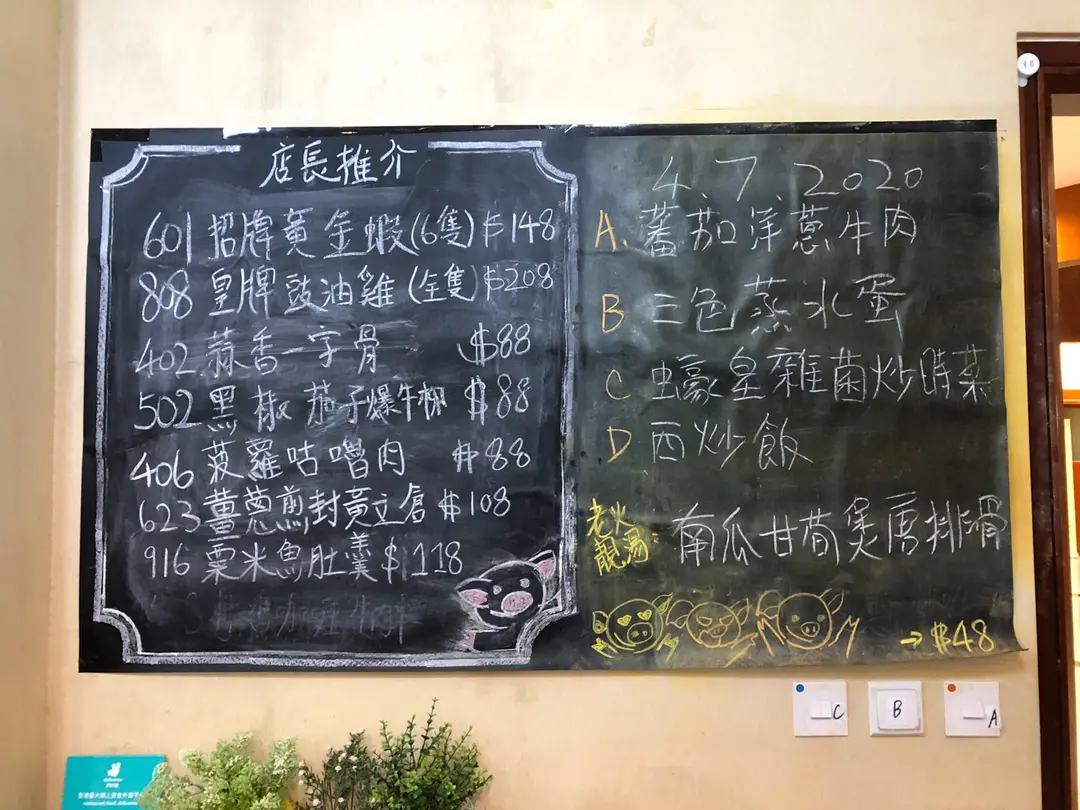 店長推介
601 招牌黃金蝦(6隻) $148
808 皇牌豉油雞(全隻) $208
402 蒜香一字骨 $88
502 黑椒茄子爆牛柳 $88
406 菠蘿咕嚕肉 $88
623 薑蔥煎封黃立倉 $108
916 粟米魚肚羹 $118
4.7.2020
A. 蕃茄洋蔥牛肉
B 三色蒸水蛋
C 蠔皇雜菌炒時菜
D 西炒飯
老火靚湯 南瓜甘荀煲唐排骨
→ $48
C
B
A
deliveroo